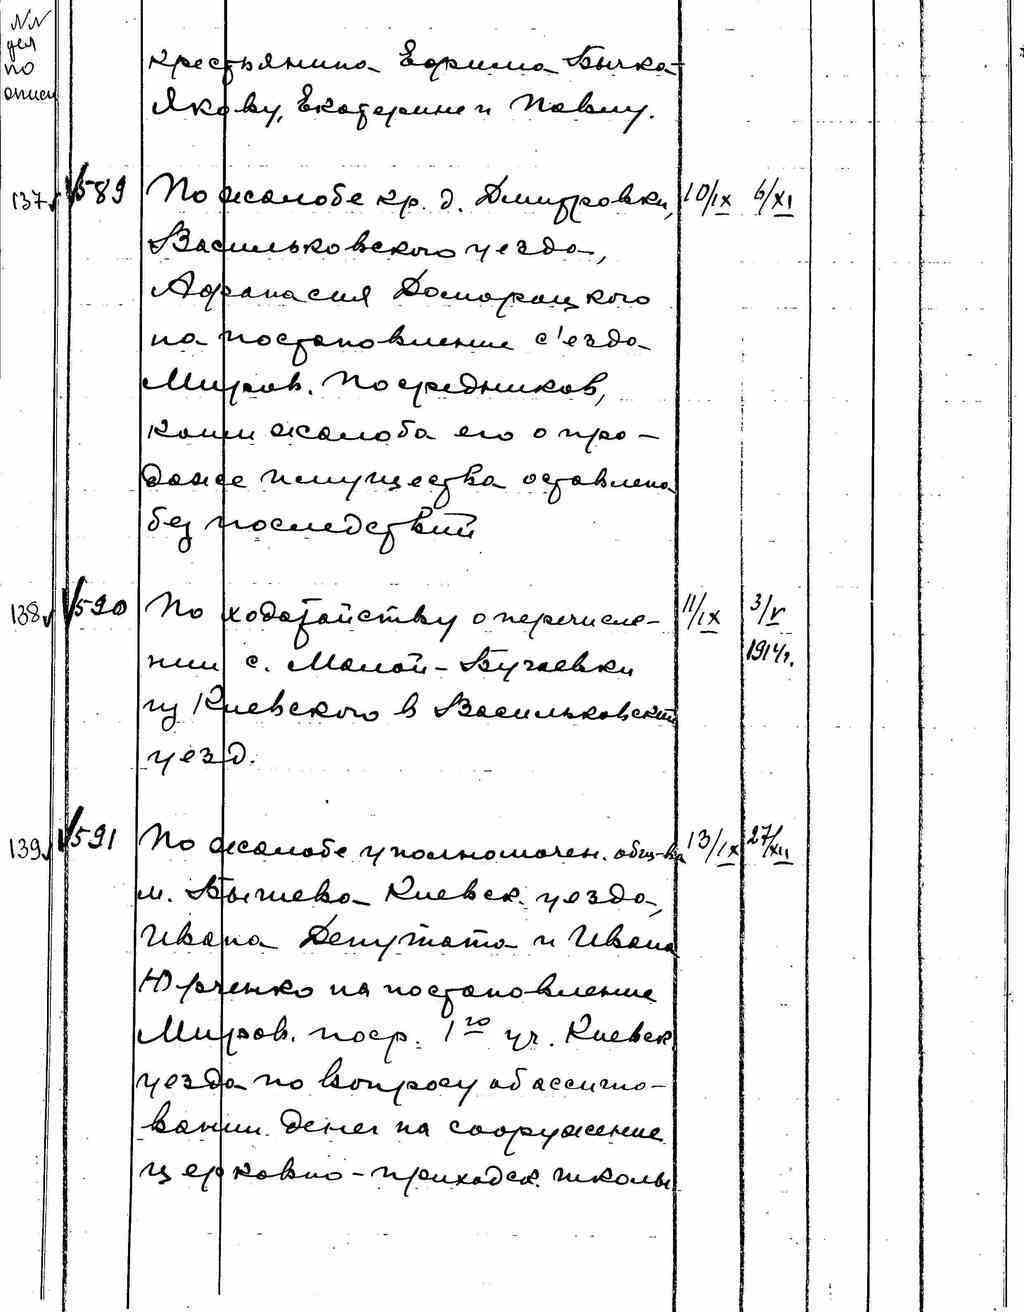 NN
дел
по
описи
крестьянина Ефрима Бычка
Якову, Екатерине и Павлу.
137 589 По жалобе кр. д. Дмитровки, 10/IX 6/XI
Васильковского уезда,
Афанасия Домарацкого
на постановление с'езда
Миров. Посредников,
коим жалоба его о про-
даже имущества оставлена
без последствий
138 590 По ходатайству о перечисле- 11/IX 3/V
1914г.
нии с. Малой-Бугаевки
из Киевского в Васильковский
уезд.
139 591 По жалобе уполномочен. общ-ва 13/IX 27/XII
м. Бышева Киевск. уезда,
Ивана Депутата и Ивана
Юрченко на постановление
Миров. поср. 1го уч. Киевск.
уезда по вопросу об ассигно-
вании денег на сооружение
церковно-приходск. школы